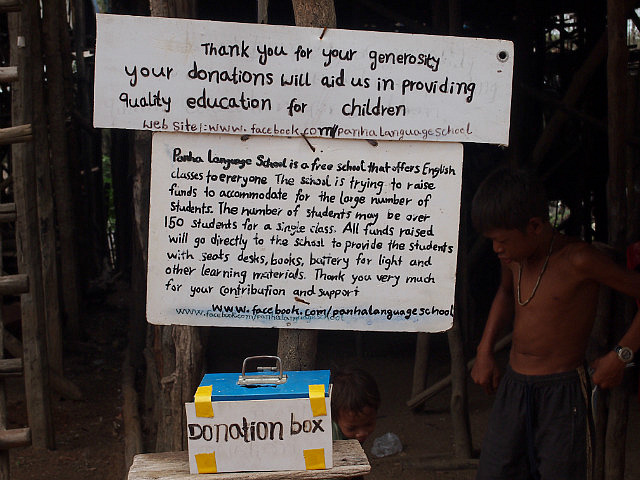 Thank you for your generosity
your donations will aid us in providing
quality education for children
Web site:www.facebook.com/panhalanguageschool
Panha Language School is a free school that offers English
classes to everyone The school is trying to raise
funds to accommodate for the large number of
students. The number of students may be over
150 students for a single class. All funds raised
will go directly to the school to provide the students
with seats desks, books, battery for light and
other learning materials. Thank you very much
for your contribution and support
www.facebook.com/panhalanguageschool
www.facebook.com/panhalanguageschool
Donation box